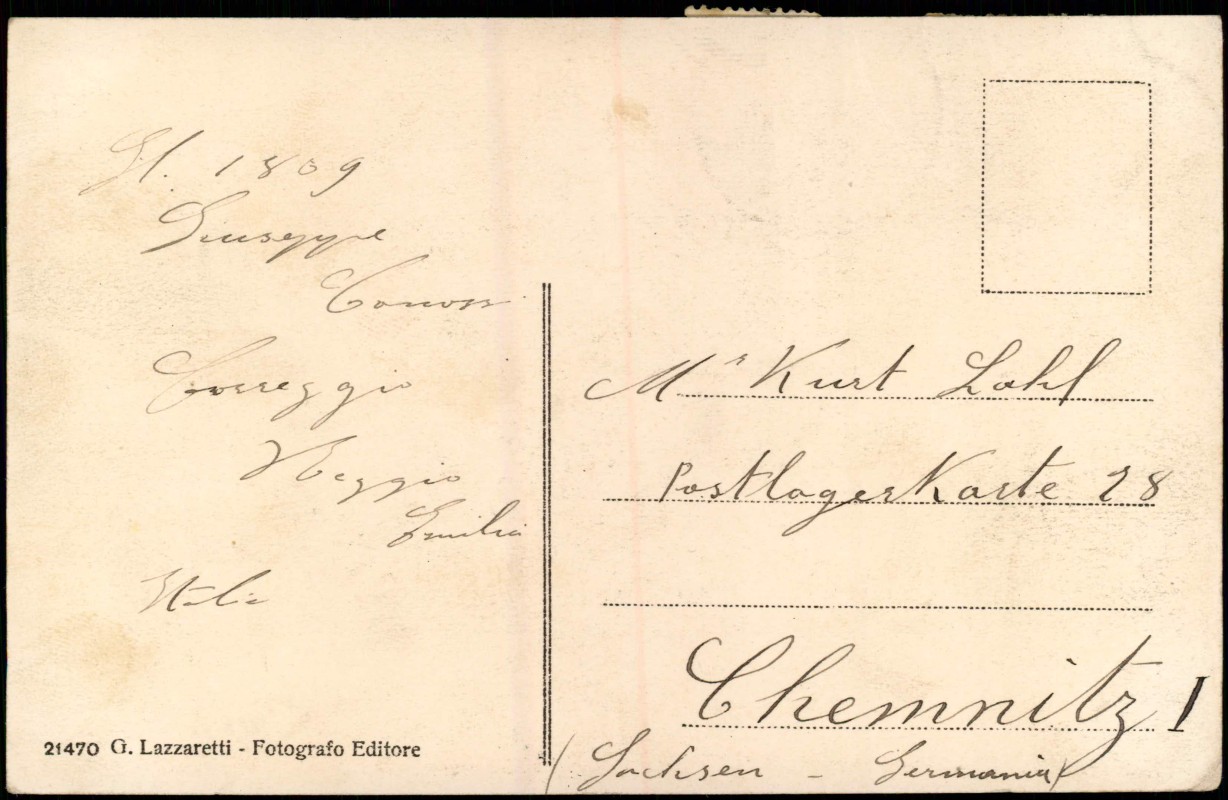 1809
Giuseppe
Correggio
Reggio
Emilia
Italia
21470 G. Lazzaretti - Fotografo Editore
Mr Kurt Lohl
Postlagerkarte 28
Chemnitz I
(Sachsen - Germania)